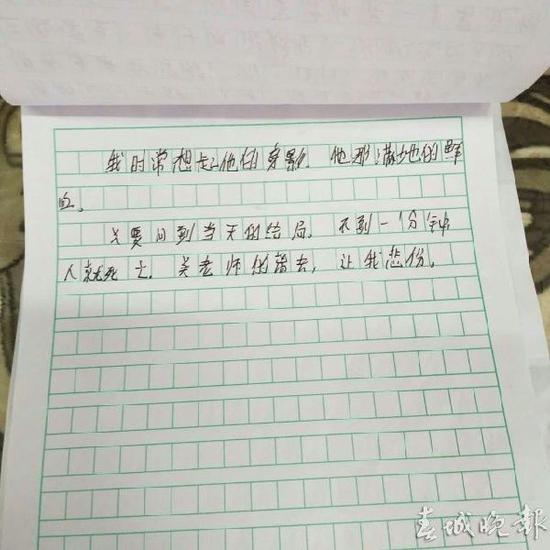 我时常想起他的身影，他那满地的鲜
血。
又要回到当天的结局，不到一分钟
人就死亡，吴老师的离去，让我悲伤。
春城晚报